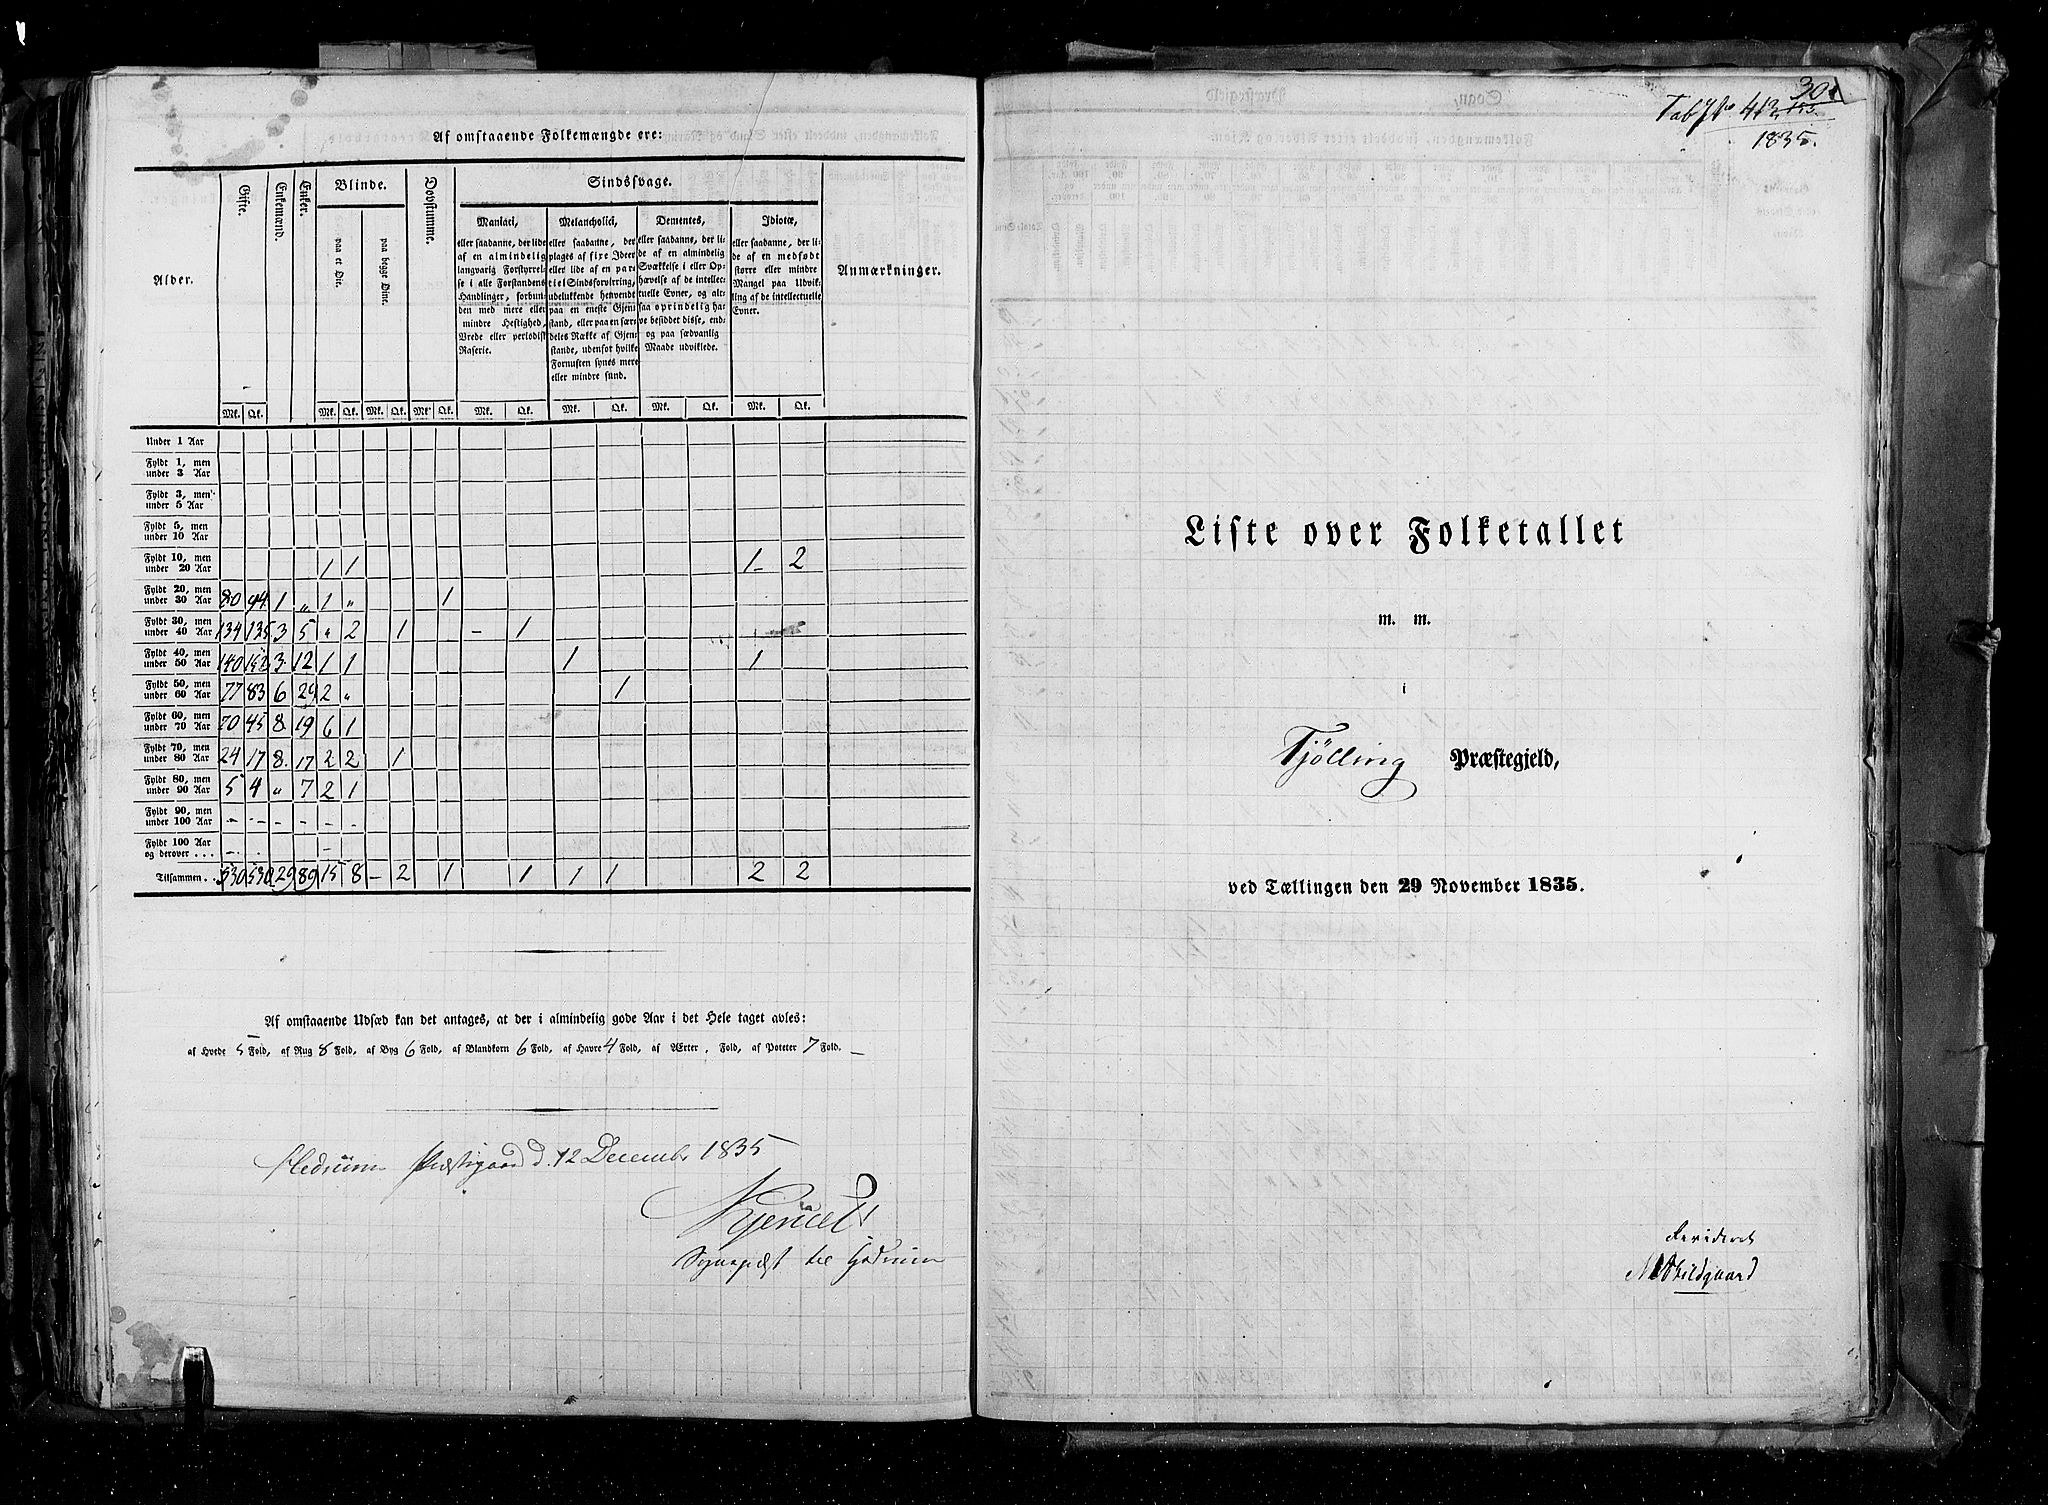 Af omstaaende Folkemængde ere:
Alder.
Gifte.
Enkemænd.
Enker.
Blinde.
paa et Øie.
paa begge Øine.
Døvstumme.
Sindssvage.
Maniaci,
eller saadanne, der lide
af en almindelig
langvarig Forstyrrel-
se i alle Forstandens
Handlinger, forbun-
den med mere eller
mindre Hestighed,
Vrede eller periodisk
Raserie.
Melancholici,
eller saadanne, der
plages af fixe Ideer
eller lide af en par-
tiel Sindsforvirring,
udelukkende henvendt
paa en eneste Gjen-
stand, eller paa en sær-
deles Række af Gjen-
stande, udenfor hvilke
Fornuften synes mere
eller mindre sund.
Dementes,
eller saadanne, der li-
de af en almindelig
Svækkelse i eller Op-
hævelse af de intellec-
tuelle Evner, og alt-
saa oprindelig ha-
ve besiddet disse, end-
og paa sædvanlig
Maade udviklede.
Idioter,
eller saadanne, der li-
de af en medfødt
større eller mindre
Mangel paa Udvik-
ling af de intellectuelle
Evner.
Anmærkninger.
Mk. Qk. Mk. Qk. Mk. Qk. Mk. Qk. Mk. Qk. Mk. Qk. Mk. Qk. Mk. Qk.
Under 1 Aar
Fyldt 1, men
under 3 Aar
Fyldt 3, men
under 5 Aar
Fyldt 5, men
under 10 Aar
Fyldt 10, men
under 20 Aar 1 1 1 2
Fyldt 20, men
under 30 Aar 80 94 1 „ 1 „ 1
Fyldt 30, men
under 40 Aar 134 135 3 5 „ 2 1 – 1
Fyldt 40, men
under 50 Aar 140 152 3 12 1 1 1 1
Fyldt 50, men
under 60 Aar 77 83 6 29 2 „ 1
Fyldt 60, men
under 70 Aar 70 45 8 19 6 1
Fyldt 70, men
under 80 Aar 24 17 8 17 2 2 1
Fyldt 80, men
under 90 Aar 5 4 „ 7 2 1
Fyldt 90, men
under 100 Aar – – – – – –
Fyldt 100 Aar
og derover . . . – – –
Tilsammen . . 530 530 29 89 15 8 – 2 1 1 1 1 2 2
Af omstaaende Udsæd kan det antages, at der i almindelig gode Aar i det Hele taget avles:
af Hvede 5 Fold, af Rug 8 Fold, af Byg 6 Fold, af Blandkorn 6 Fold, af Havre 4 Fold, af Ærter . Fold, af Poteter 7 Fold. –
Hedrum Præstegaard d. 12 December 1835
Sognepræst til Hedrum
301
Tab No 413
1835.
Liste over Folketallet
m. m.
i
Tjölling Præstegjeld,
ved Tællingen den 29 November 1835.
Revideret